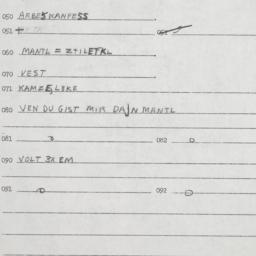 050 ARBES KANFESS
051 +
060 MANTL = ZTILETKL
070 VEST
071 KAMZELYKE
080 VEN DU GIST MIR DAJN MANTL
081 ɔ 082 O
090 VOLT ZX EM
091 O 092 O